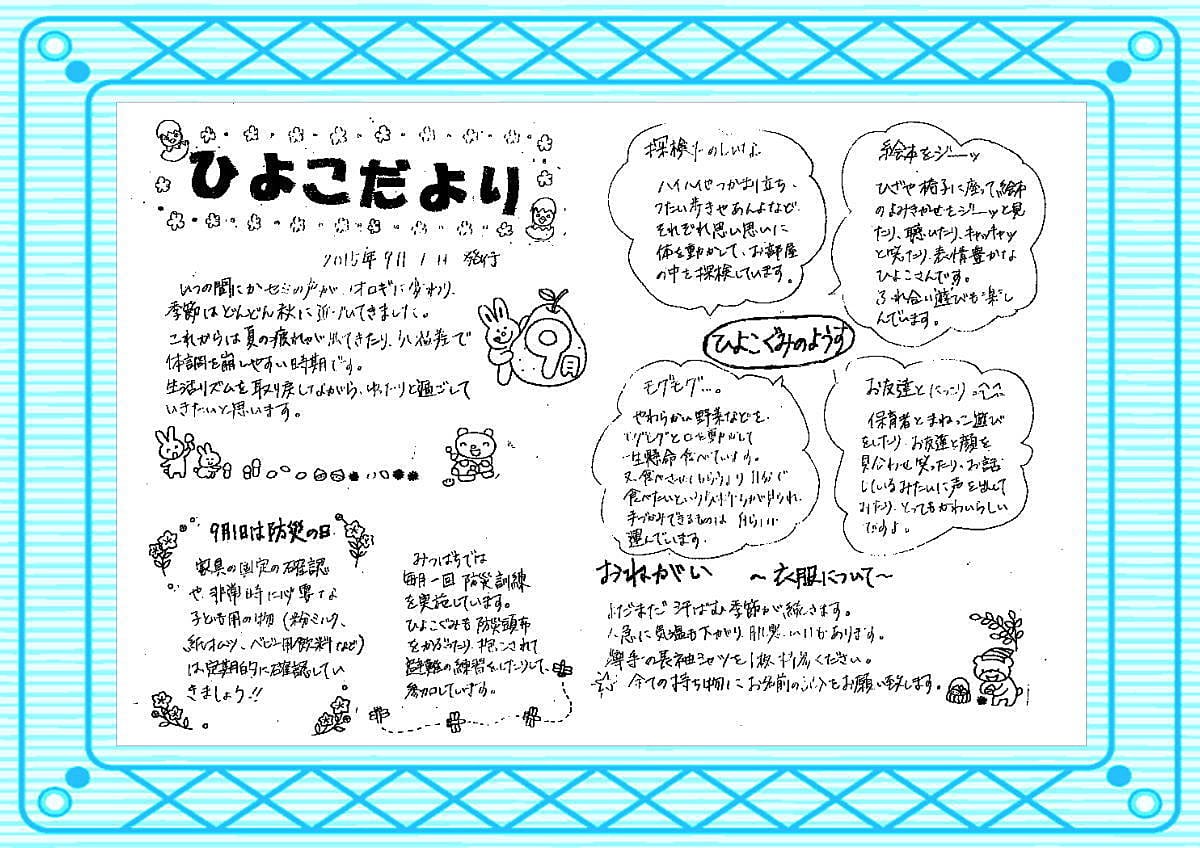 ひよこだより
2015年9月1日 発行
いつの間にかセミの声が、コオロギに変わり、
季節はどんどん秋に近づいてきました。
これからは夏の疲れが出てきたり、気温差で
体調を崩しやすい時期です。
生活リズムを取り戻しながら、ゆったりと過ごして
いきたいと思います。
9月
9月1日は防災の日
家具の固定の確認
や、非常時に必要な
子ども用の物（粉ミルク、
紙オムツ、ベビー用飲料など）
は定期的に確認してい
きましょう!!
みつばちでは
毎月一回 防災訓練
を実施しています。
ひよこぐみも防災頭巾
をかぶったり、抱っこされて
避難の練習をしたりして、
参加しています。
探検たのしいな
ハイハイやつかまり立ち、
つたい歩きやあんよなど、
それぞれ思い思いに
体を動かして、お部屋
の中を探検しています。
絵本をジーッ
ひざや椅子に座って絵本
のよみきかせをジーッと見
たり、聴いたり、キャッキャッ
と笑ったり、表情豊かな
ひよこさんです。
ふれ合い遊びも楽し
んでいます。
ひよこぐみのようす
モグモグ…。
やわらかい野菜などを、
モグモグと口を動かして
一生懸命食べています。
又、食べさせてもらうより自分で
食べたいという気持ちが見られ、
手づかみできるものは 自ら口に
運んでいます。
お友達とにっこり
保育者とまねっこ遊び
をしたり、お友達と顔を
見合わせ笑ったり、お話
しているみたいに声を出して
みたり、とってもかわいらしい
ですよ。
おねがい ～衣服について～
まだまだ汗ばむ季節が続きます。
急に気温も下がり、肌寒い日もあります。
薄手の長袖シャツを1枚 ください。
☆ 全ての持ち物にお名前の記入をお願い致します。